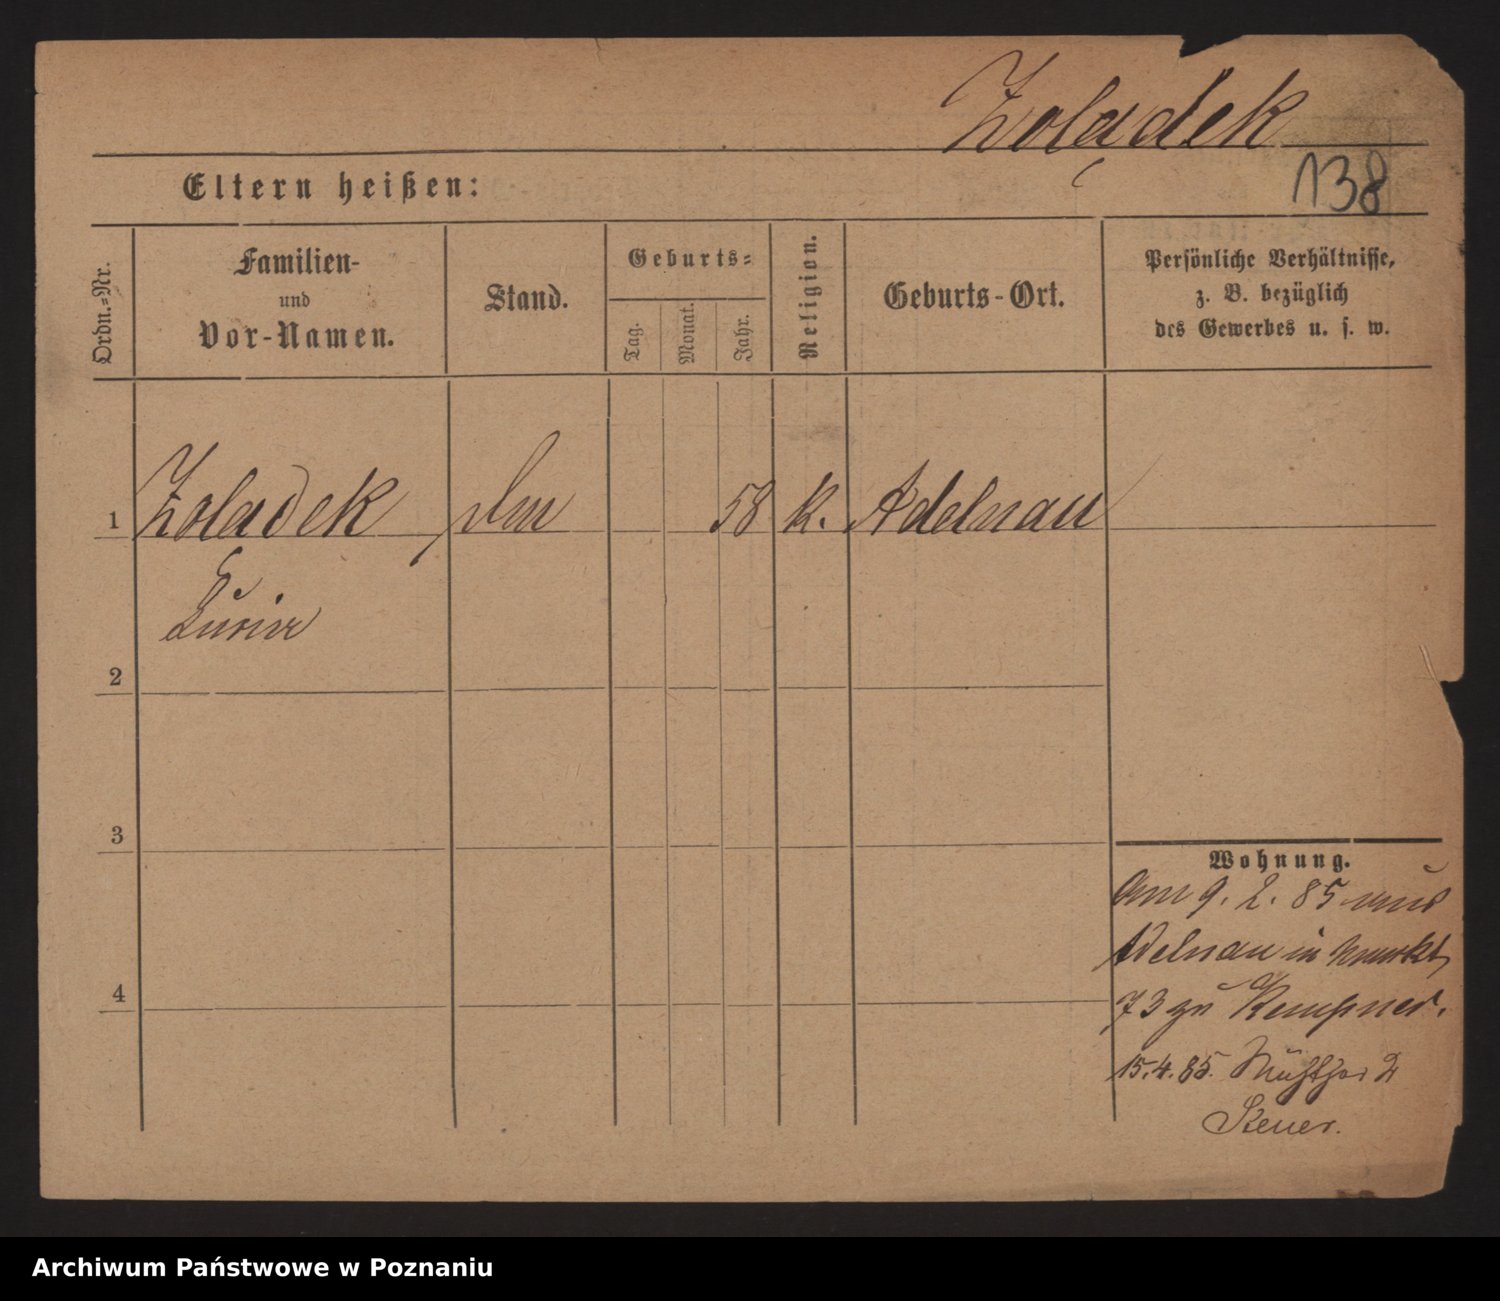 Zoladek
138
Eltern heißen:
Ordn.-Nr.
Familien-
und
Vor-Namen.
Stand.
Geburts-
Tag.
Monat.
Jahr.
Religion.
Geburts-Ort.
Persönliche Verhältnisse,
z. B. bezüglich
des Gewerbes u. s. w.
1 Zoladek 58 k. Adelnau
2
3
4
Wohnung.
Am 9. 2. 85 aus
Adelnau in Markt
73 zu Kempner.
15.4.85. 2
Steuer.
Archiwum Państwowe w Poznaniu